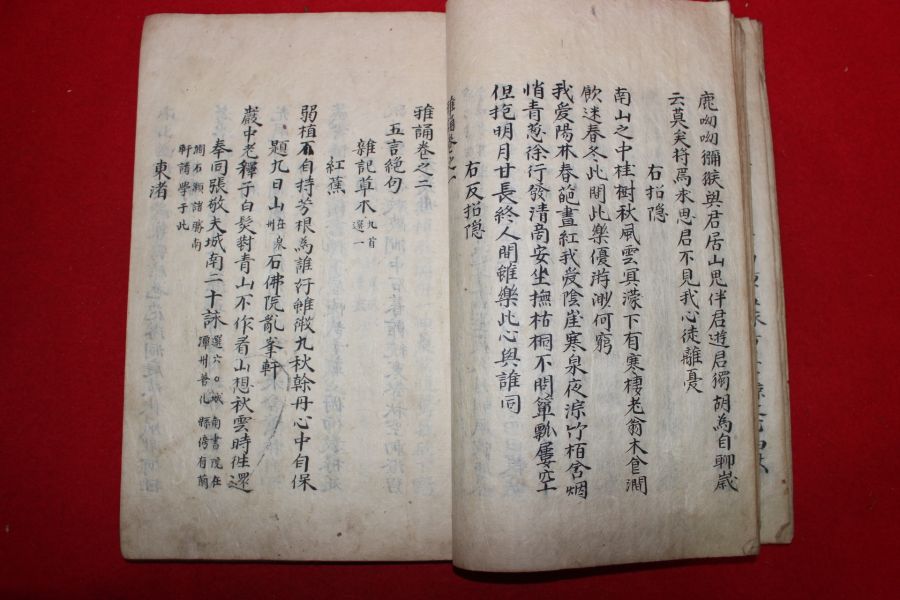 鹿呦呦獼猴與君居山鬼伴君遊君獨胡為自聊歲
云莫矣將焉求思君不見我心徒離憂
右招隱
南山之中桂樹秋風雲冥濛下有寒棲老翁木食澗
飲迷春冬此間此樂優游渺何窮
我愛陽林春葩晝紅我愛陰崖寒泉夜淙竹栢含烟
悄青葱徐行發清商安坐撫枯桐不問簞瓢屢空
但抱明月甘長終人間雖樂此心與誰同
右反招隱
雅誦卷之二
五言絶句
雜記草木 九首選一
紅蕉
弱植不自持芳根為誰好雖微九秋榦丹心中自保
題九日山 在泉州 石佛院亂峯軒
巖中老釋子白髮對青山不作看山想秋雲時往還
奉同張敬夫城南二十詠 選六○城南書院在潭州善化縣傍有蘭
澗石瀨諸勝南軒講學于此
東渚